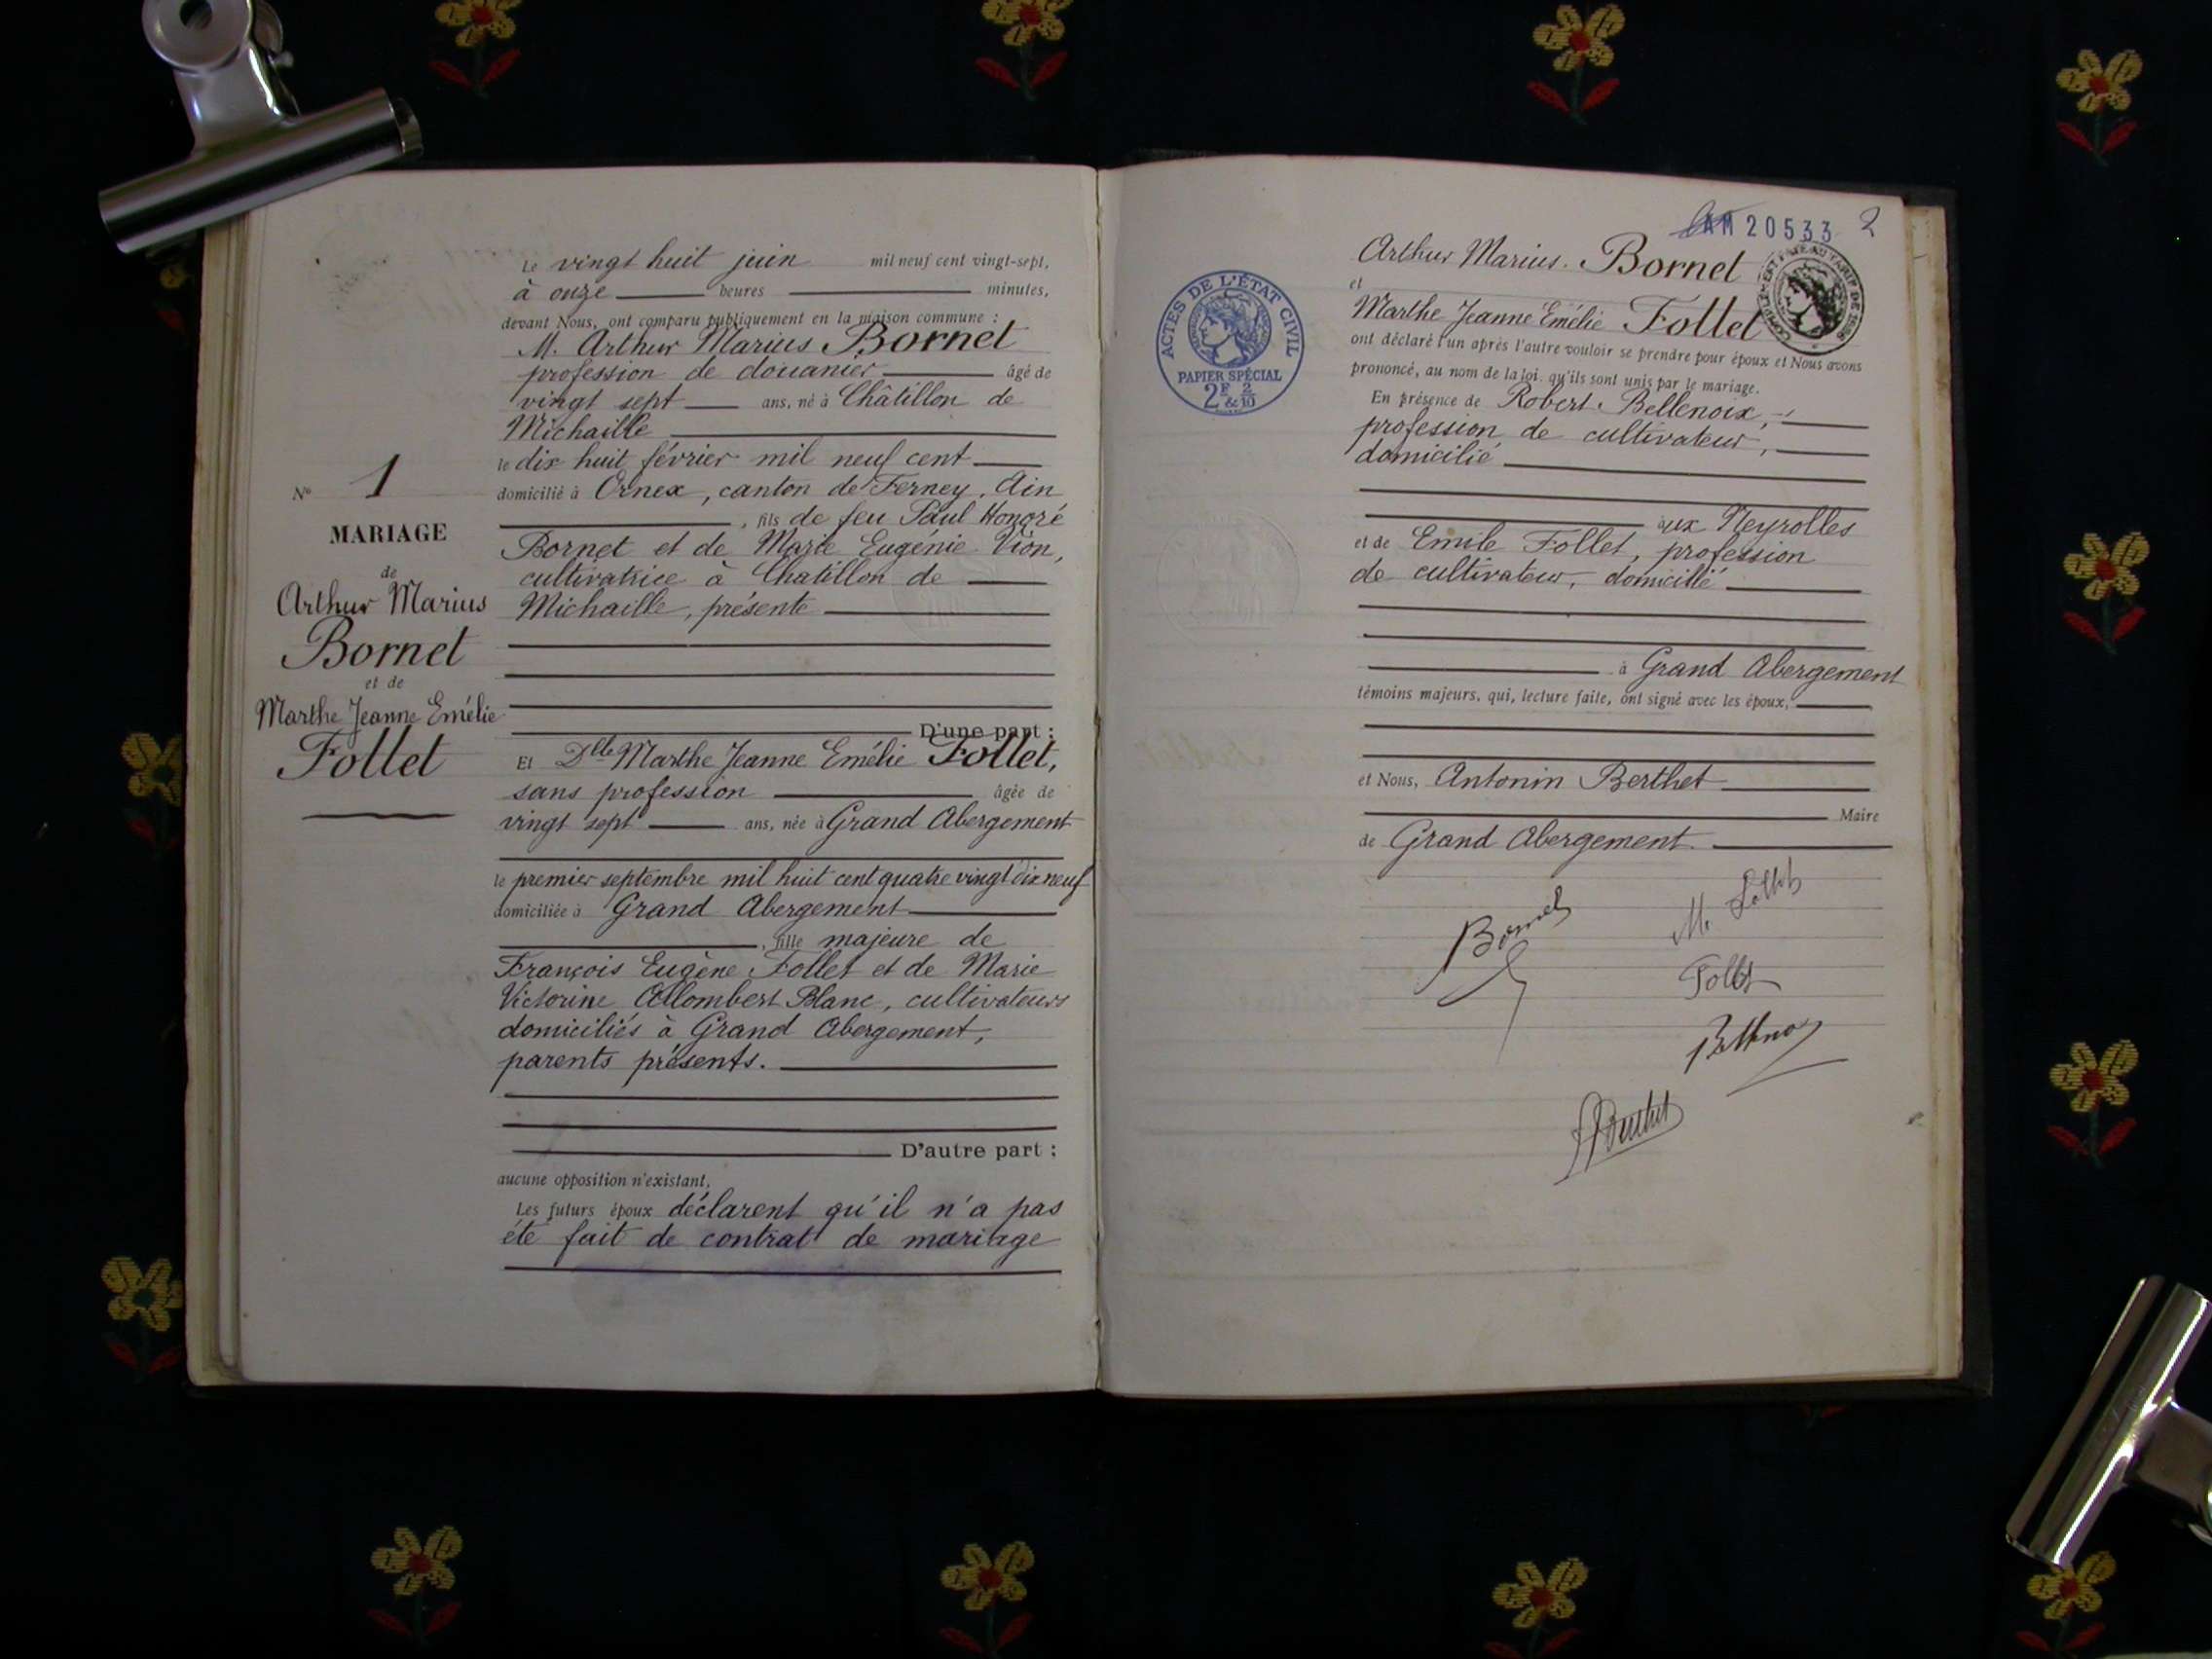 Le vingt huit juin mil neuf cent vingt-sept,
à onze heures minutes,
devant Nous, ont comparu publiquement en la maison commune :
M. Arthur Marius Bornet
profession de douanier âgé de
vingt sept ans, né à Châtillon de
Michaille
le dix huit février mil neuf cent
domicilié à Ornex, canton de Ferney, Ain
, fils de feu Paul Honoré
Bornet et de Marie Eugénie Vion,
cultivatrice à Chatillon de
Michaille, présente
D'une part ;
Et Dlle Marthe Jeanne Emélie Follet,
sans profession âgée de
vingt sept ans, née à Grand Abergement
le premier septembre mil huit cent quatre vingt dix neuf
domiciliée à Grand Abergement
, fille majeure de
François Eugène Follet et de Marie
Victorine Collombert Blanc, cultivateurs
domiciliés à Grand Abergement,
parents présents.
D'autre part ;
aucune opposition n'existant,
Les futurs époux déclarent qu'il n'a pas
été fait de contrat de mariage
N° 1
MARIAGE
de
Arthur Marius
Bornet
et de
Marthe Jeanne Emélie
Follet
AM 20533 2
Arthur Marius. Bornet
et
Marthe Jeanne Emélie Follet
ont déclaré l'un après l'autre vouloir se prendre pour époux et Nous avons
prononcé, au nom de la loi, qu'ils sont unis par le mariage.
En présence de Robert Bellenoix,
profession de cultivateur,
domicilié
aux Neyrolles
et de Emile Follet, profession
de cultivateur, domicilié
à Grand Abergement
témoins majeurs, qui, lecture faite, ont signé avec les époux,
et Nous, Antonin Berthet
Maire
de Grand Abergement.
Bornet
M. Follet
Follet
Bellenoix
ABerthet
ACTES DE L'ÉTAT CIVIL
PAPIER SPÉCIAL
2F & 2/10